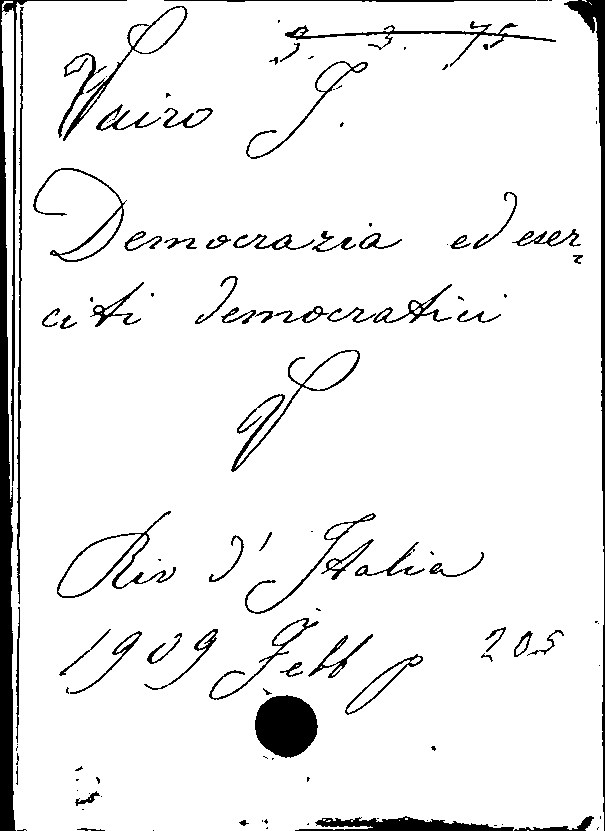 3. 3. 75
Vairo J.
Democrazia ed eser-
citi democratici
V
Riv d' Italia
1909 Febb p 205